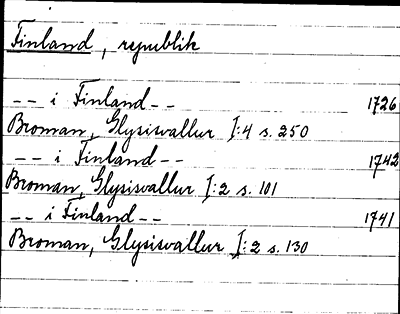 Finland, republik
-- i Finland -- 1726
Broman, Glysisvallur I:4 s. 250
-- i Finland -- 1742
Broman, Glysisvallur I:2 s. 101
-- i Finland -- 1741
Broman, Glysisvallur I:2 s. 130